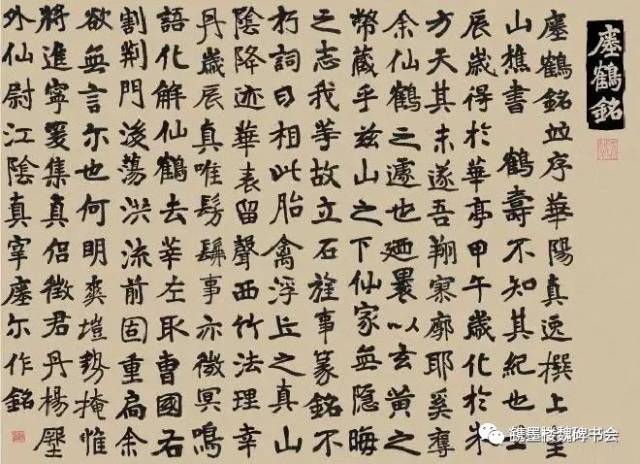 瘞鶴銘
瘞鶴銘並序華陽真逸撰上皇
山樵書 鶴壽不知其紀也壬
辰歲得於華亭甲午歲化於朱
方天其未遂吾翔寥廓耶奚奪
余仙鶴之遽也廼裹以玄黃之
幣藏乎茲山之下仙家無隱晦
之志我等故立石旌事篆銘不
朽詞曰相此胎禽浮丘之真山
陰降迹華表留聲西竹法理幸
丹歲辰真唯髣髴事亦微冥鳴
語化解仙鶴去莘左取曹國右
割荊門後蕩洪流前固重扃余
欲無言尔也何明爽塏勢掩惟
將進寧爰集真侶徵君丹楊
外仙尉江陰真宰瘞尔作銘
镌墨楼魏碑书会